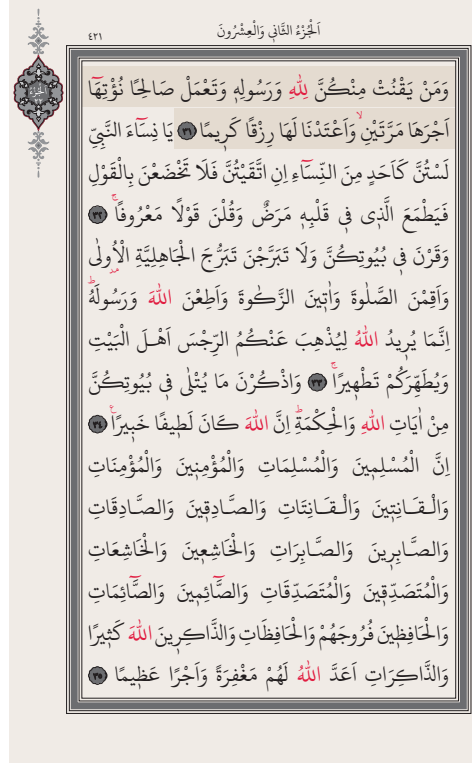 اَلْجُزْءُ الثَّانِي وَالْعِشْرُونَ
٤٢١
الجزء
وَمَنْ يَقْنُتْ مِنْكُنَّ لِلّٰهِ وَرَسُولِه۪ وَتَعْمَلْ صَالِحًا نُؤْتِهَٓا
اَجْرَهَا مَرَّتَيْنِۙ وَاَعْتَدْنَا لَهَا رِزْقًا كَر۪يمًا ﴿٣١﴾ يَا نِسَٓاءَ النَّبِيِّ
لَسْتُنَّ كَاَحَدٍ مِنَ النِّسَٓاءِ اِنِ اتَّقَيْتُنَّ فَلَا تَخْضَعْنَ بِالْقَوْلِ
فَيَطْمَعَ الَّذ۪ي ف۪ي قَلْبِه۪ مَرَضٌ وَقُلْنَ قَوْلًا مَعْرُوفًاۚ ﴿٣٢﴾
وَقَرْنَ ف۪ي بُيُوتِكُنَّ وَلَا تَبَرَّجْنَ تَبَرُّجَ الْجَاهِلِيَّةِ الْاُو۫لٰى
وَاَقِمْنَ الصَّلٰوةَ وَاٰت۪ينَ الزَّكٰوةَ وَاَطِعْنَ اللّٰهَ وَرَسُولَهُۜ
اِنَّمَا يُر۪يدُ اللّٰهُ لِيُذْهِبَ عَنْكُمُ الرِّجْسَ اَهْلَ الْبَيْتِ
وَيُطَهِّرَكُمْ تَطْه۪يرًاۚ ﴿٣٣﴾ وَاذْكُرْنَ مَا يُتْلٰى ف۪ي بُيُوتِكُنَّ
مِنْ اٰيَاتِ اللّٰهِ وَالْحِكْمَةِۜ اِنَّ اللّٰهَ كَانَ لَط۪يفًا خَب۪يرًاۚ ﴿٣٤﴾
اِنَّ الْمُسْلِم۪ينَ وَالْمُسْلِمَاتِ وَالْمُؤْمِن۪ينَ وَالْمُؤْمِنَاتِ
وَالْقَانِت۪ينَ وَالْقَانِتَاتِ وَالصَّادِق۪ينَ وَالصَّادِقَاتِ
وَالصَّابِر۪ينَ وَالصَّابِرَاتِ وَالْخَاشِع۪ينَ وَالْخَاشِعَاتِ
وَالْمُتَصَدِّق۪ينَ وَالْمُتَصَدِّقَاتِ وَالصَّٓائِم۪ينَ وَالصَّٓائِمَاتِ
وَالْحَافِظ۪ينَ فُرُوجَهُمْ وَالْحَافِظَاتِ وَالذَّاكِر۪ينَ اللّٰهَ كَث۪يرًا
وَالذَّاكِرَاتِ اَعَدَّ اللّٰهُ لَهُمْ مَغْفِرَةً وَاَجْرًا عَظ۪يمًا ﴿٣٥﴾